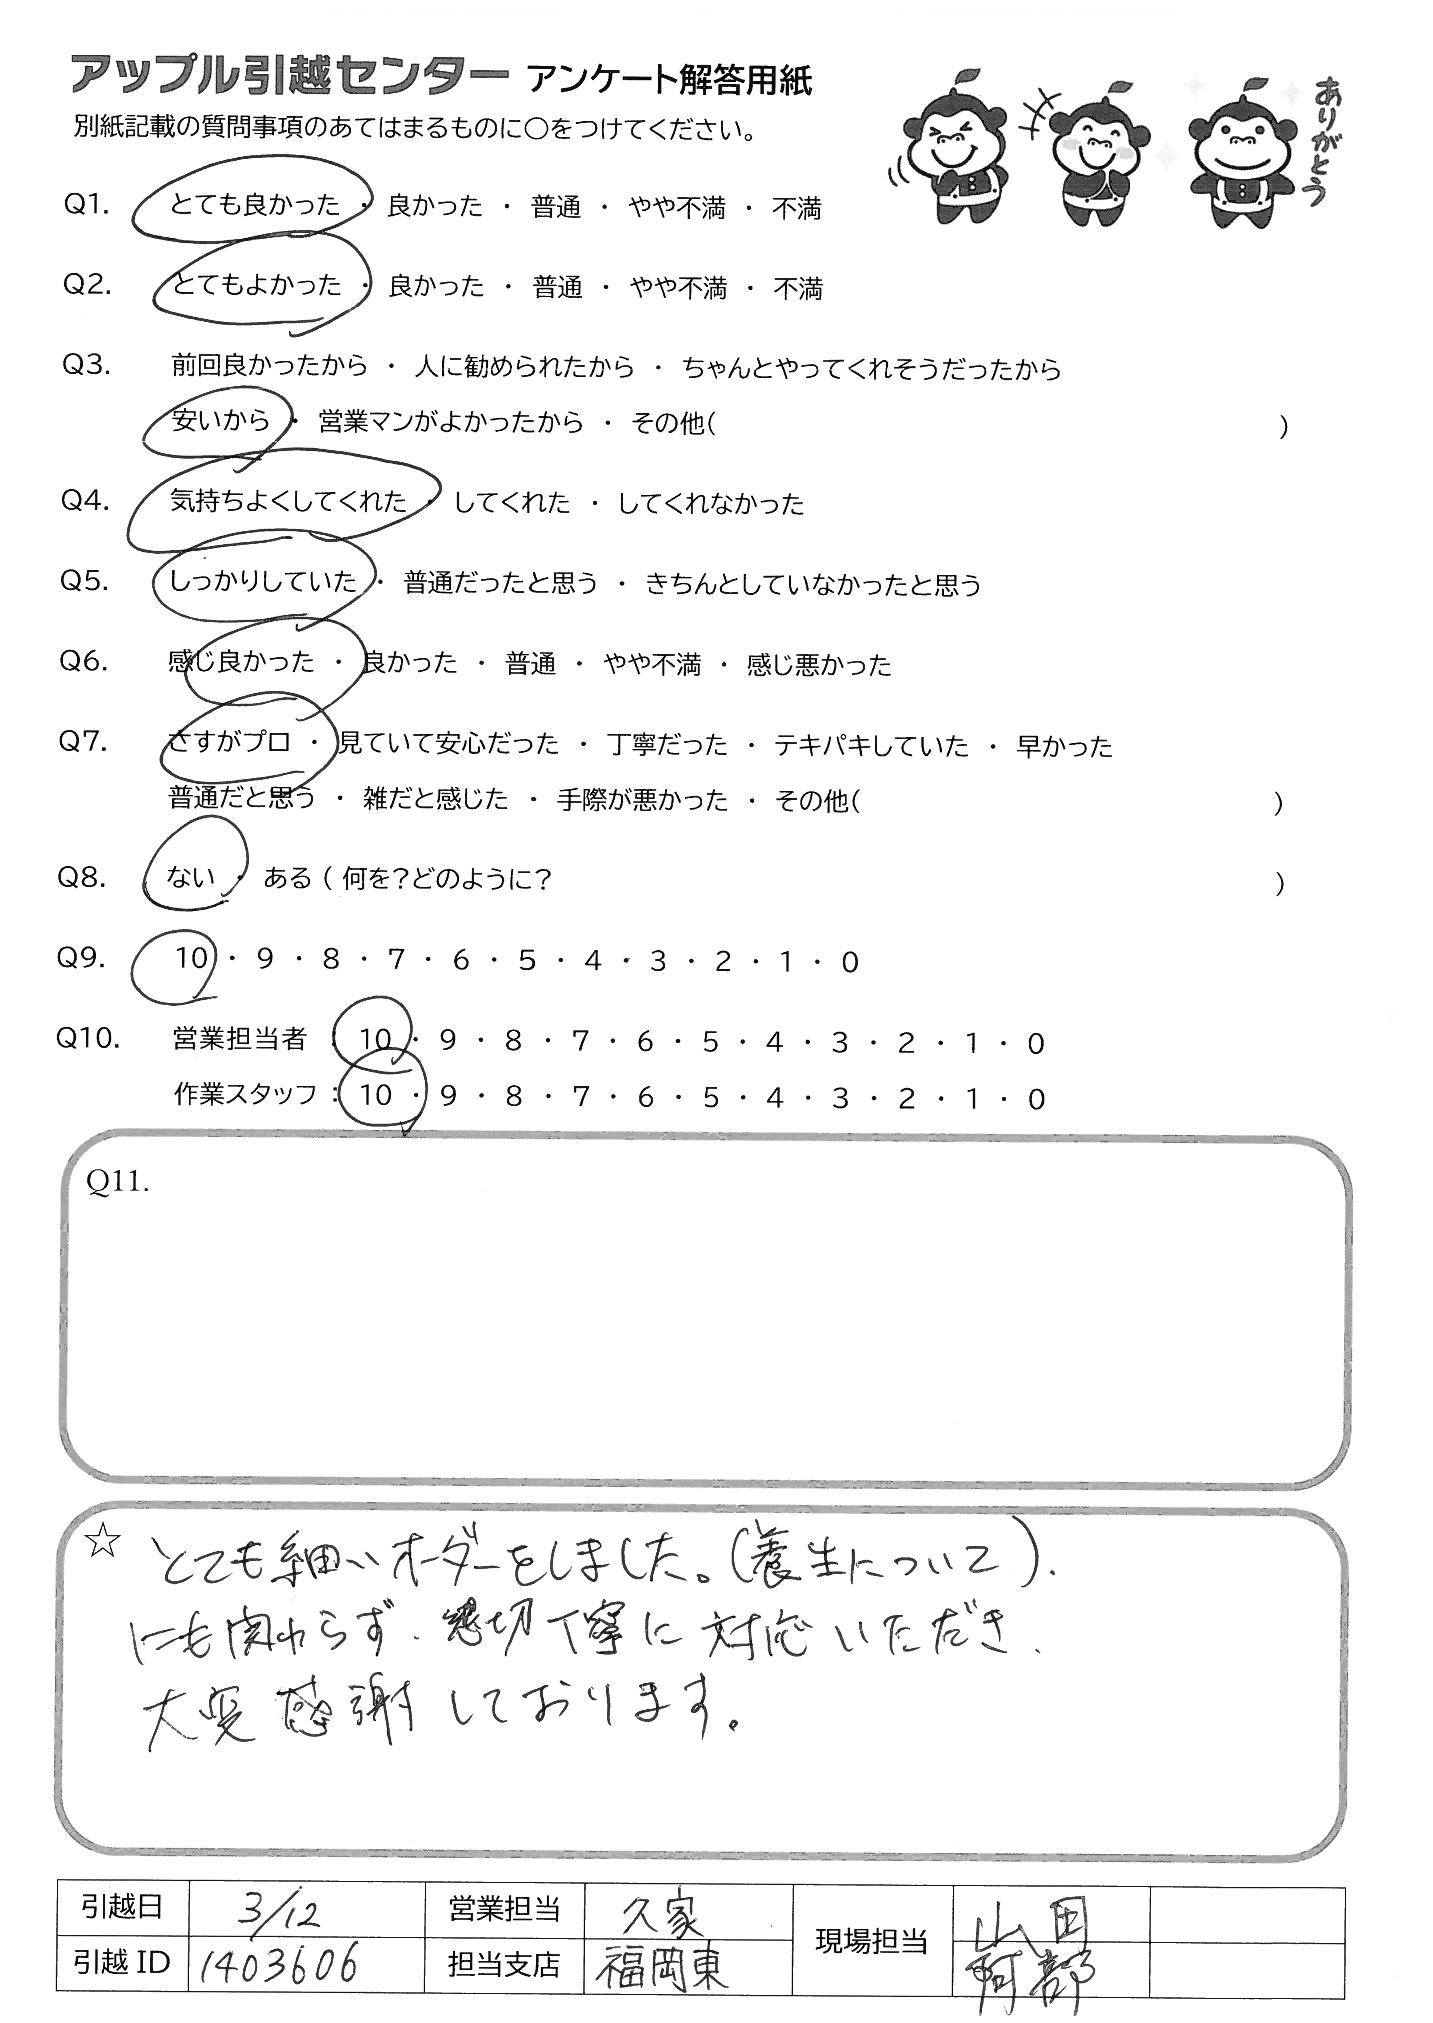 アップル引越センター アンケート解答用紙
ありがとう
別紙記載の質問事項のあてはまるものに○をつけてください。
Q1. とても良かった ・ 良かった ・ 普通 ・ やや不満 ・ 不満
Q2. とてもよかった ・ 良かった ・ 普通 ・ やや不満 ・ 不満
Q3. 前回良かったから ・ 人に勧められたから ・ ちゃんとやってくれそうだったから
安いから ・ 営業マンがよかったから ・ その他( )
Q4. 気持ちよくしてくれた ・ してくれた ・ してくれなかった
Q5. しっかりしていた ・ 普通だったと思う ・ きちんとしていなかったと思う
Q6. 感じ良かった ・ 良かった ・ 普通 ・ やや不満 ・ 感じ悪かった
Q7. さすがプロ ・ 見ていて安心だった ・ 丁寧だった ・ テキパキしていた ・ 早かった
普通だと思う ・ 雑だと感じた ・ 手際が悪かった ・ その他( )
Q8. ない ・ ある ( 何を?どのように? )
Q9. 10 ・ 9 ・ 8 ・ 7 ・ 6 ・ 5 ・ 4 ・ 3 ・ 2 ・ 1 ・ 0
Q10. 営業担当者 : 10 ・ 9 ・ 8 ・ 7 ・ 6 ・ 5 ・ 4 ・ 3 ・ 2 ・ 1 ・ 0
作業スタッフ : 10 ・ 9 ・ 8 ・ 7 ・ 6 ・ 5 ・ 4 ・ 3 ・ 2 ・ 1 ・ 0
Q11.
☆ とても細いオーダーをしました。(養生について).
にも関わらず、懇切丁寧に対応いただき、
大変感謝しております。
引越日 3/12 営業担当 久家 現場担当 山田
引越 ID 1403606 担当支店 福岡東 阿部